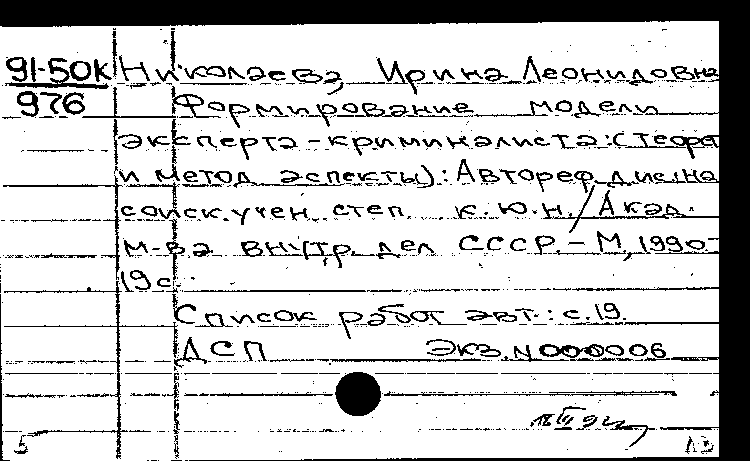 91-50к Николаева, Ирина Леонидовна
976 Формирование модели
эксперта-криминалиста:(Теорет
и метод аспекты): Автореф. дис. на
соиск. учен. степ. к.ю.н./Акад.
м-ва внутр. дел СССР. - М, 1990-
19 с.
Список работ авт.: с. 19.
ДСП Экз. N 000006
5